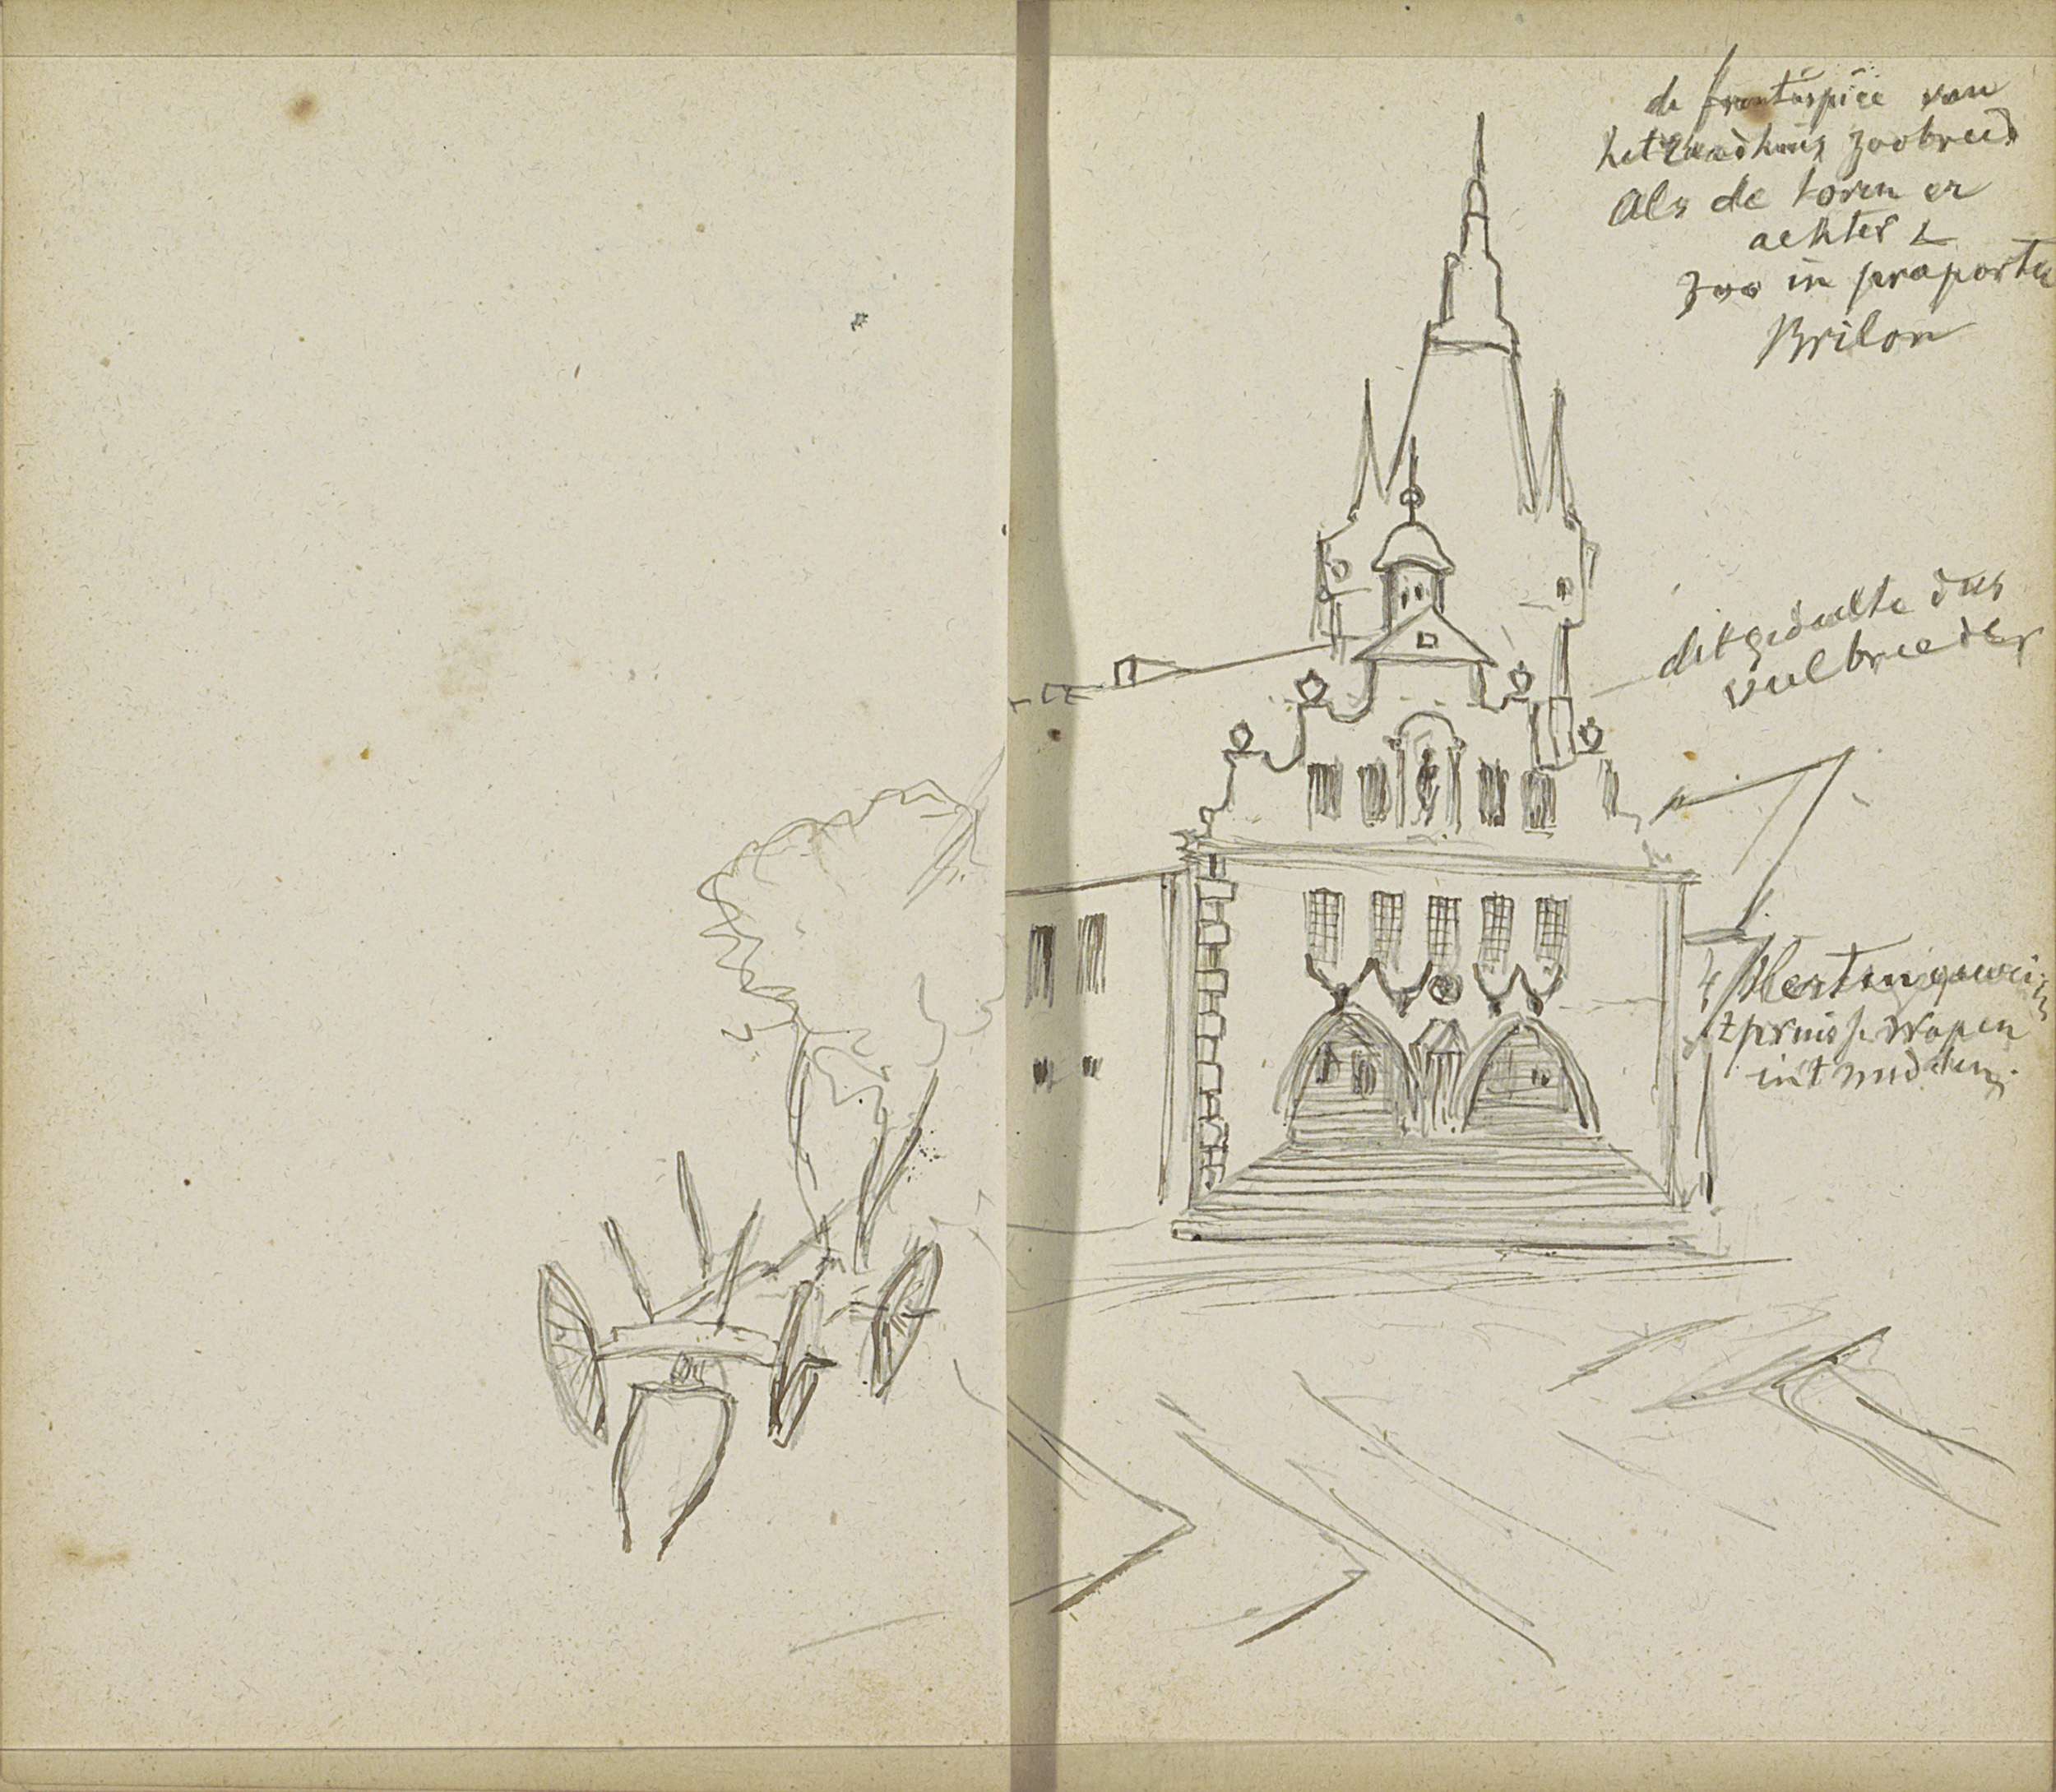 de frontispice van
het raadhuis zoo breed
Als de toren er
achter &
zoo in praportie
Brilon
dit gedeelte dus
veel breeder
4
't pruis wapen
in 't midden